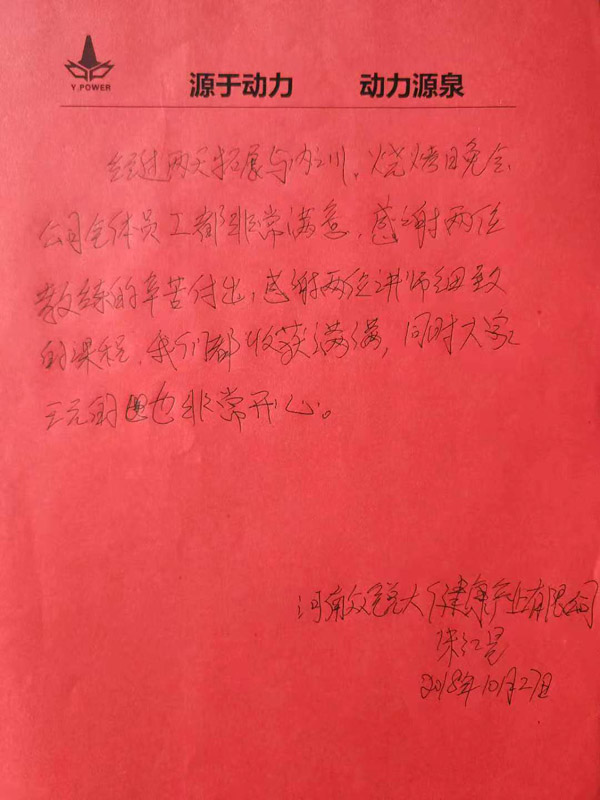 Y.POWER
源于动力 动力源泉
经过两天拓展与内训，烧烤日晚会
公司全体员工都非常满意，感谢两位
教练的辛苦付出，感谢两位讲师细致
的课程，我们都收获满满，同时大家
玩的也非常开心。
河南 大健康产业有限公司
2018年10月27日